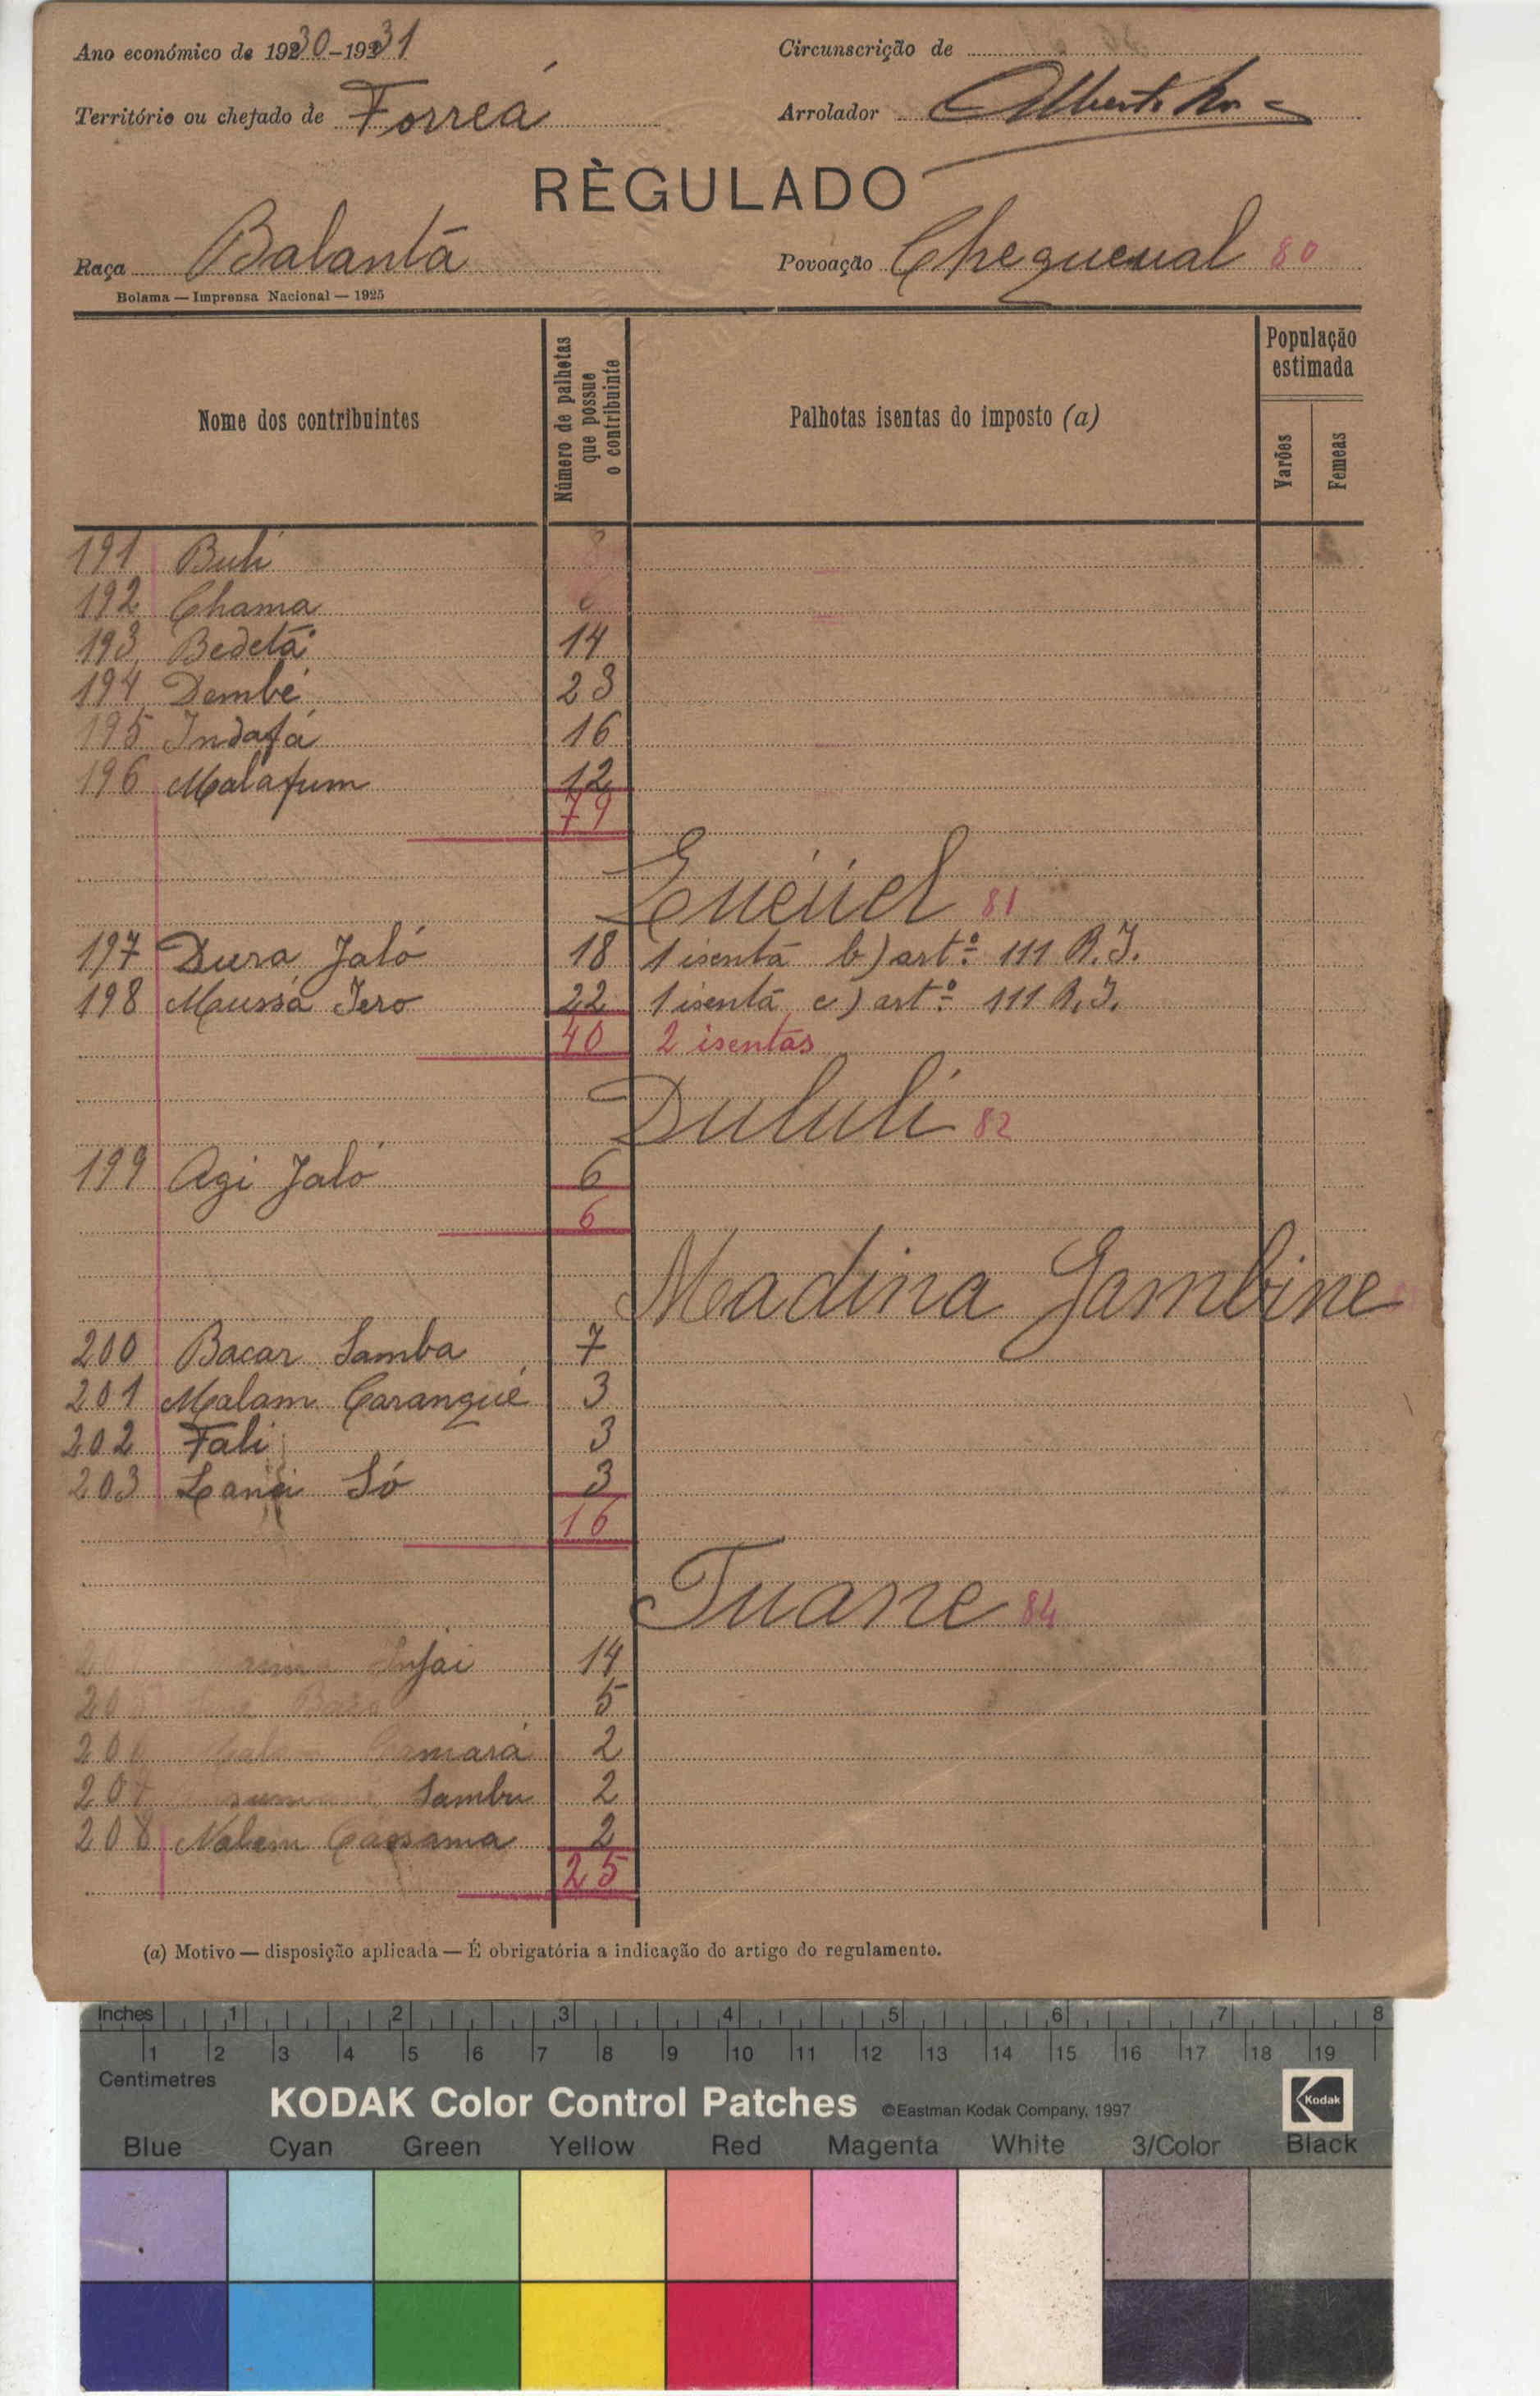 Ano económico de 1930-1931
Circunscrição de
Território ou chefado de Forreá
Arrolador Alberto
RÈGULADO
Raça Balantã
Povoação Chequeual 80
Bolama — Imprensa Nacional — 1925
Nome dos contribuintes
Número de palhotas que possue o contribuinte
Palhotas isentas do imposto (a)
População estimada
Varões
Femeas
191 Buli
192 Chama
193 Bedetá 14
194 Dembé 23
195 Indafá 16
196 Malafum 12
79
Euéuel 81
197 Dura Jaló 18 1 isenta b) artº 111 R.I.
198 Mussá Iero 22 1 isenta c) artº 111 R.I.
40 2 isentas
Dululi 82
199 Agi Jaló 6
6
Madina Gambine
200 Bacar Samba 7
201 Malam Carangué 3
202 Fali 3
203 Lanei Só 3
16
Tuane 84
Injai 14
5
Camará 2
207 Sambu 2
208 Nalem Cassama 2
25
(a) Motivo — disposição aplicada — É obrigatória a indicação do artigo do regulamento.
Inches 1 2 3 4 5 6 7 8
1 2 3 4 5 6 7 8 9 10 11 12 13 14 15 16 17 18 19
Centimetres
KODAK Color Control Patches ©Eastman Kodak Company, 1997 Kodak
Blue Cyan Green Yellow Red Magenta White 3/Color Black